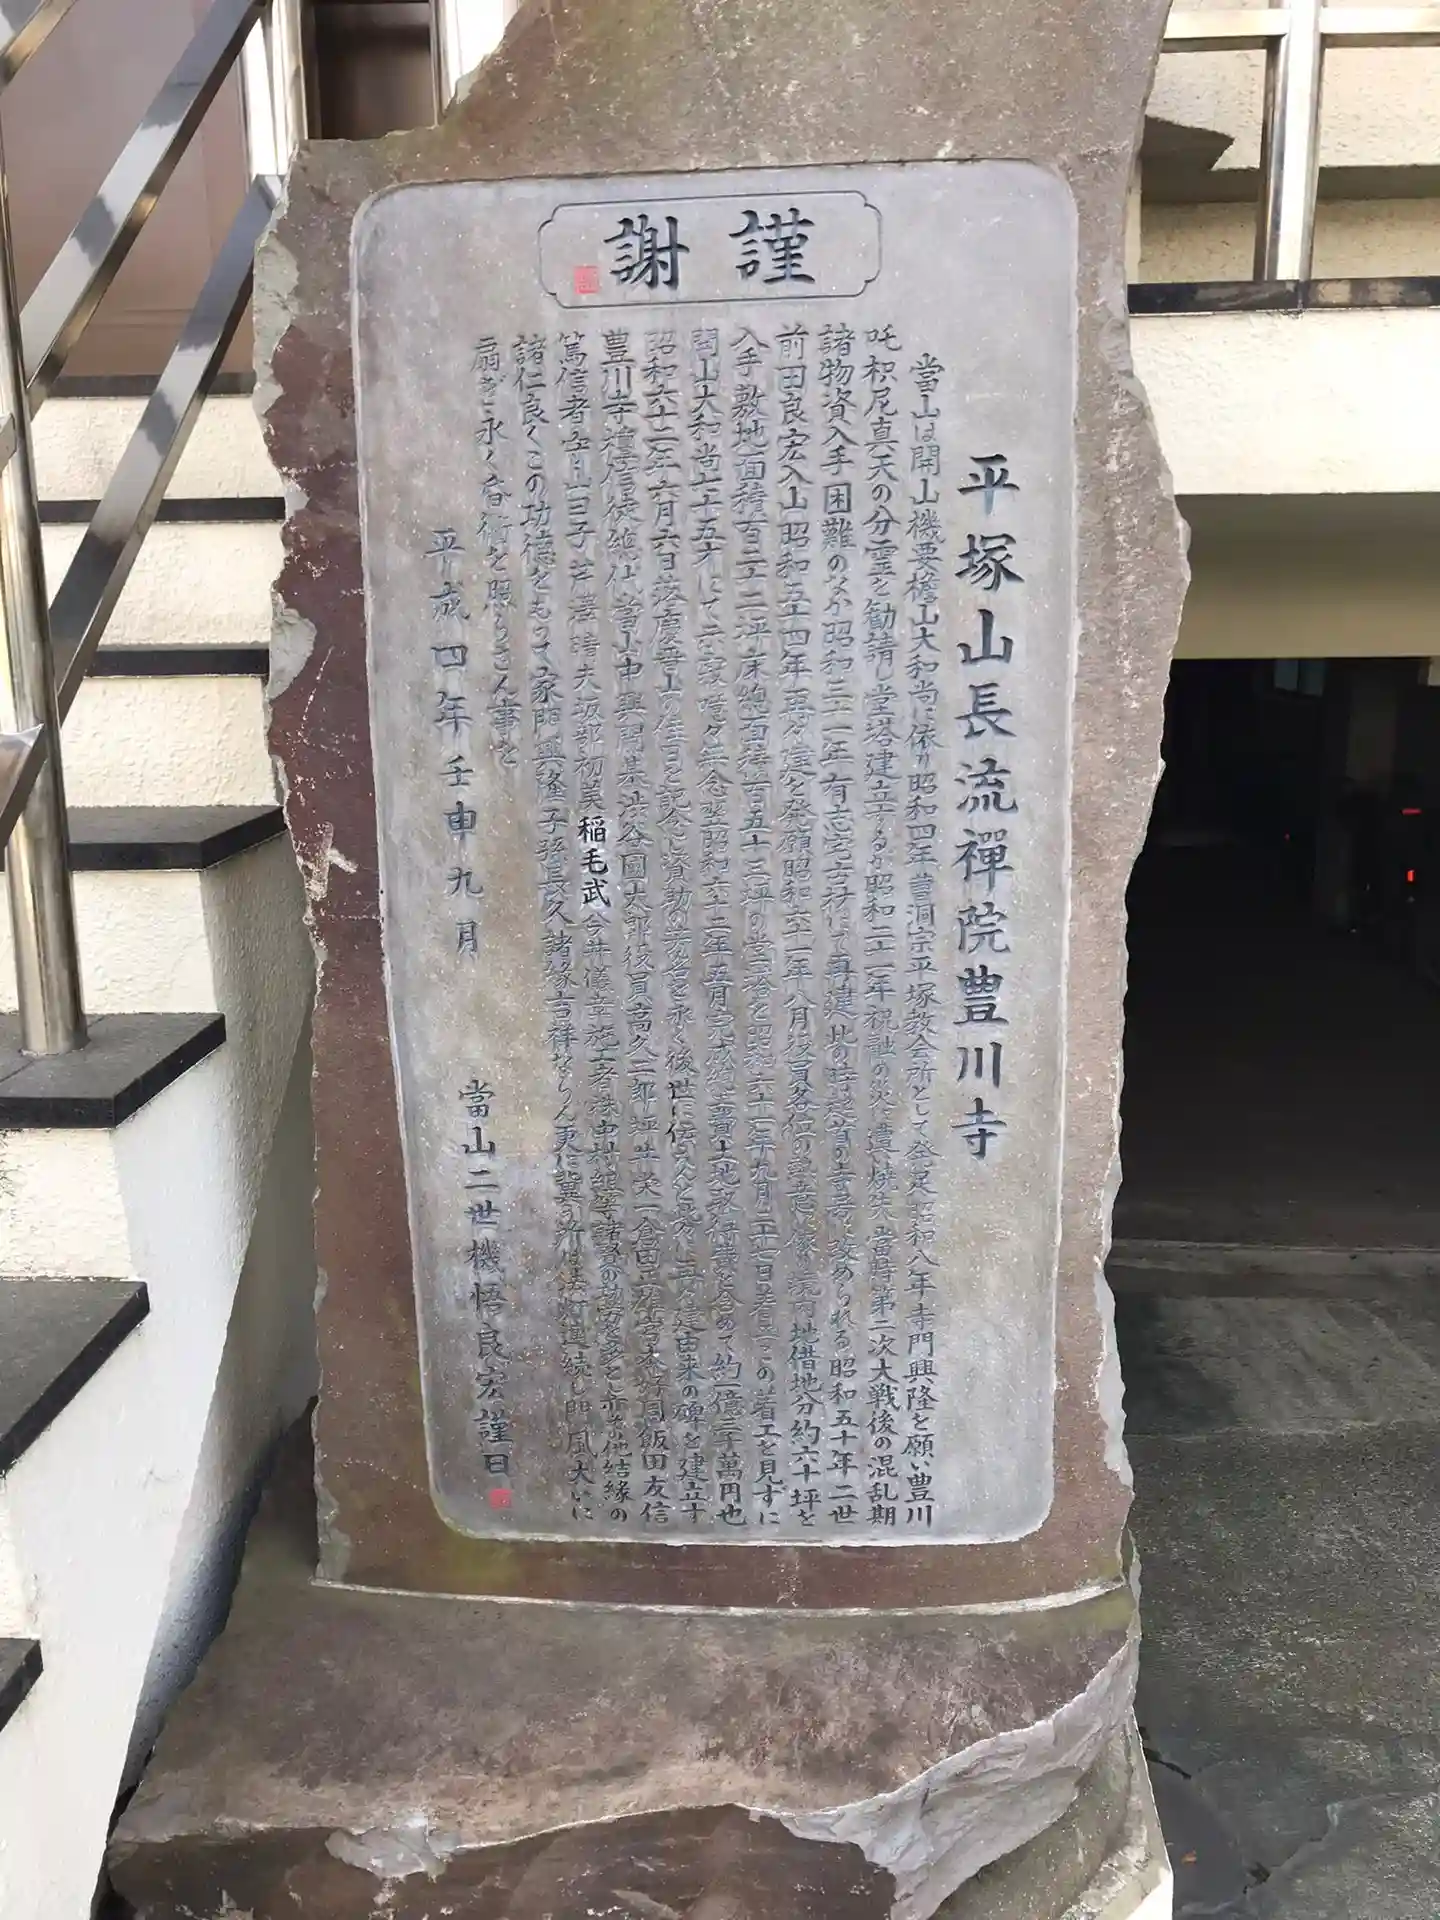 謹謝
平塚山長流禪院豊川寺
當山は開山機要檐山大和尚に依り昭和四年曹洞宗平塚教会所として発足昭和八年寺門興隆を願い豊川
吒枳尼真天の分霊を勧請し堂塔建立するが昭和二十年祝融の災に遭い焼失當時第二次大戦後の混乱期
諸物資入手困難のなか昭和三十一年有志宅古材にて再建此の時豊川寺号に改められる昭和五十年二世
前田良宏入山昭和五十四年再々建を発願昭和六十一年八月役員各位の熱意に依り境内地借地分約六十坪を
入手敷地面積百二十二坪床總面積百五十三坪の堂塔を昭和六十一年九月二十七日着工この着工を見ずに
開山大和尚六十五才にて示寂噫々無念翌昭和六十二年五月完成総工費土地取得費を含めて約一億三千萬円也
昭和六十二年六月六日落慶晋山の佳日を記念に資助の芳名を永く後世に伝えんと茲に再々建由来の碑を建立す
豊川寺檀信徒總代當山中興開基渋谷國太郎役員高久二郎坪井栄一倉田正雄宮本好司飯田友信
篤信者 山ヨ子芹澤晴夫坂部初美稲毛武今井儀幸施工者株中村組等諸賢の功労を多とし亦その他結縁の
諸仁良くこの功徳をもって家門興隆子孫長久諸縁吉祥ならん更に冀う所は法灯連続し門風大いに
扇ぎ永く昏衢を照らさん事を
平成四年壬申九月
當山二世機悟良宏謹曰